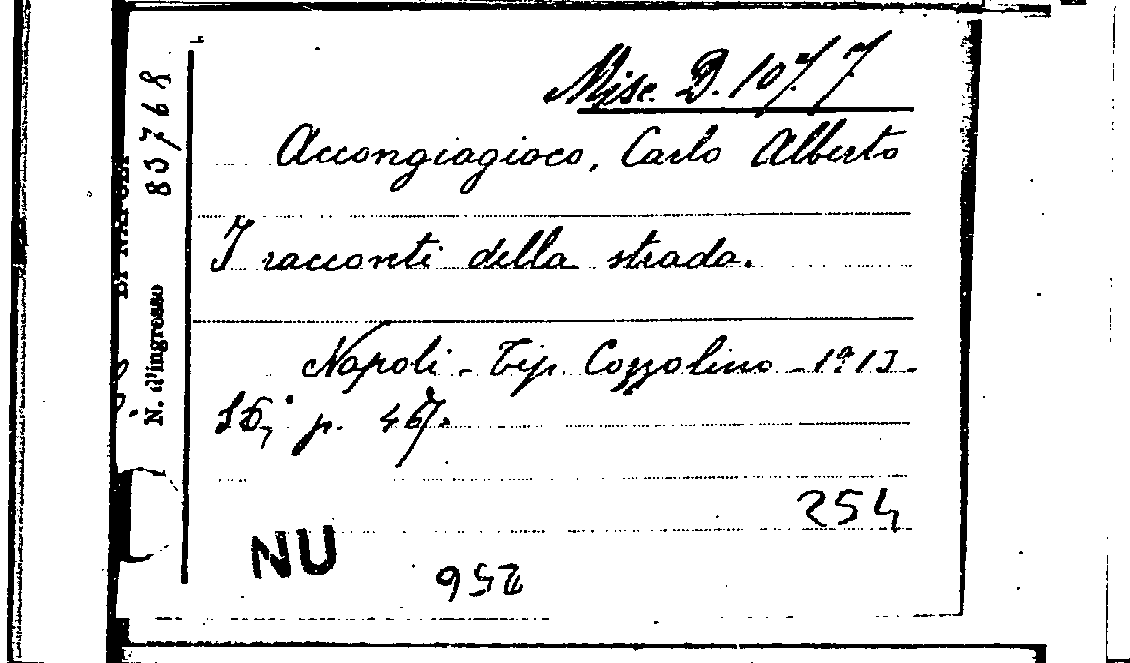 Misc. D. 107. 7
Accongiagioco, Carlo Alberto
I racconti della strada.
Napoli - Tip. Cozzolino - 1913 -
16°, p. 467.
254
NU
256
N. d'ingresso 83768
DI NAPOLI